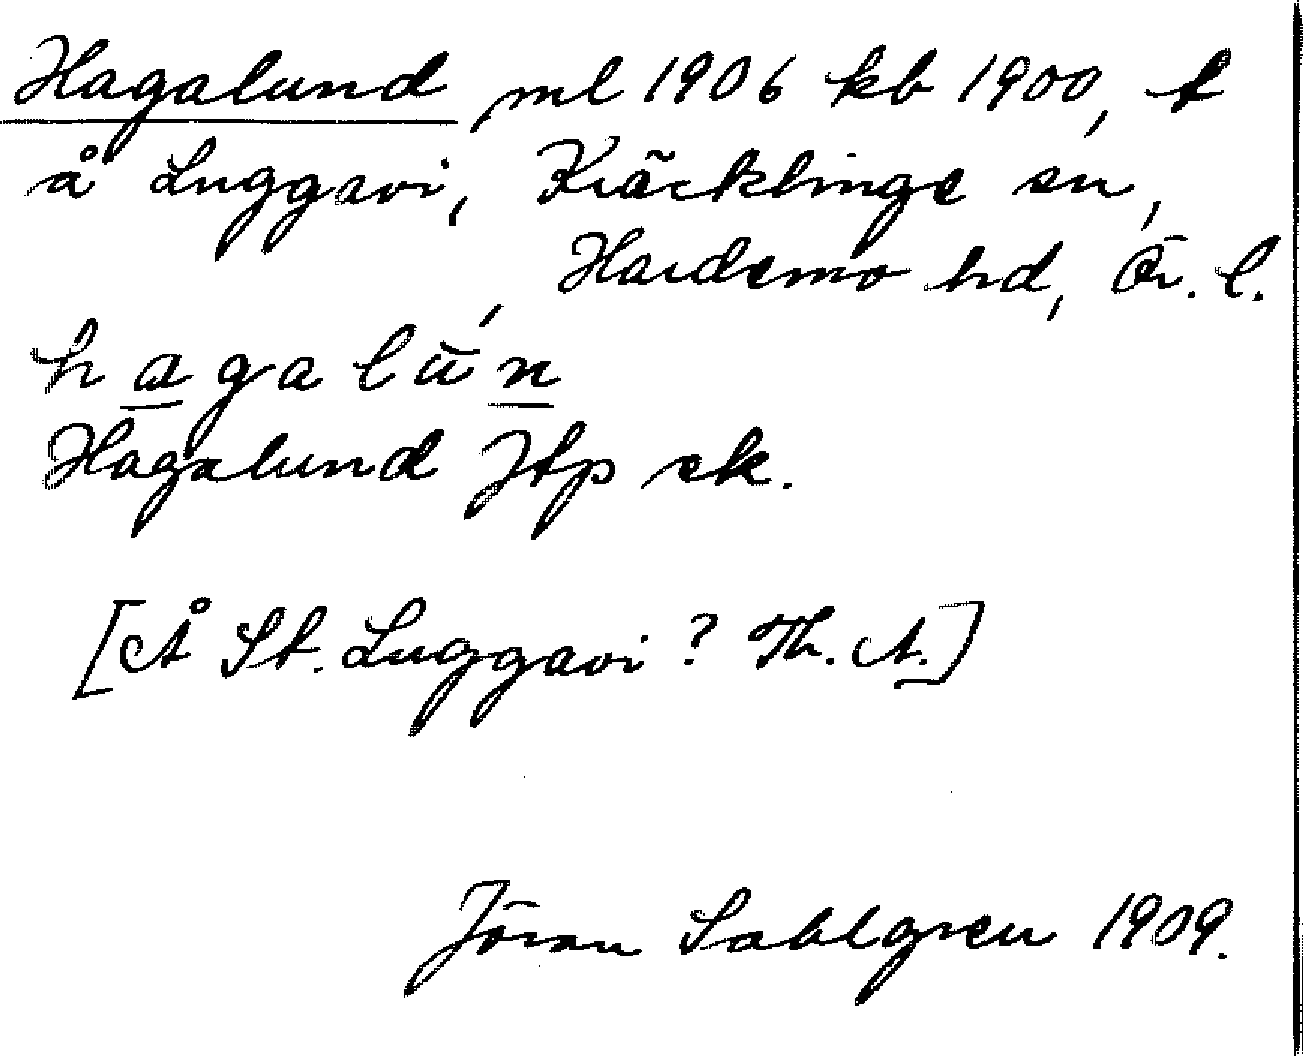 Hagalund ml 1906 kb 1900, t
å Luggavi, Kräcklinge sn,
Hardemo hd, Ör. l.
hagalún
Hagalund Jtp ek.
[Å St. Luggavi? Th. A.]
Jöran Sahlgren 1909.